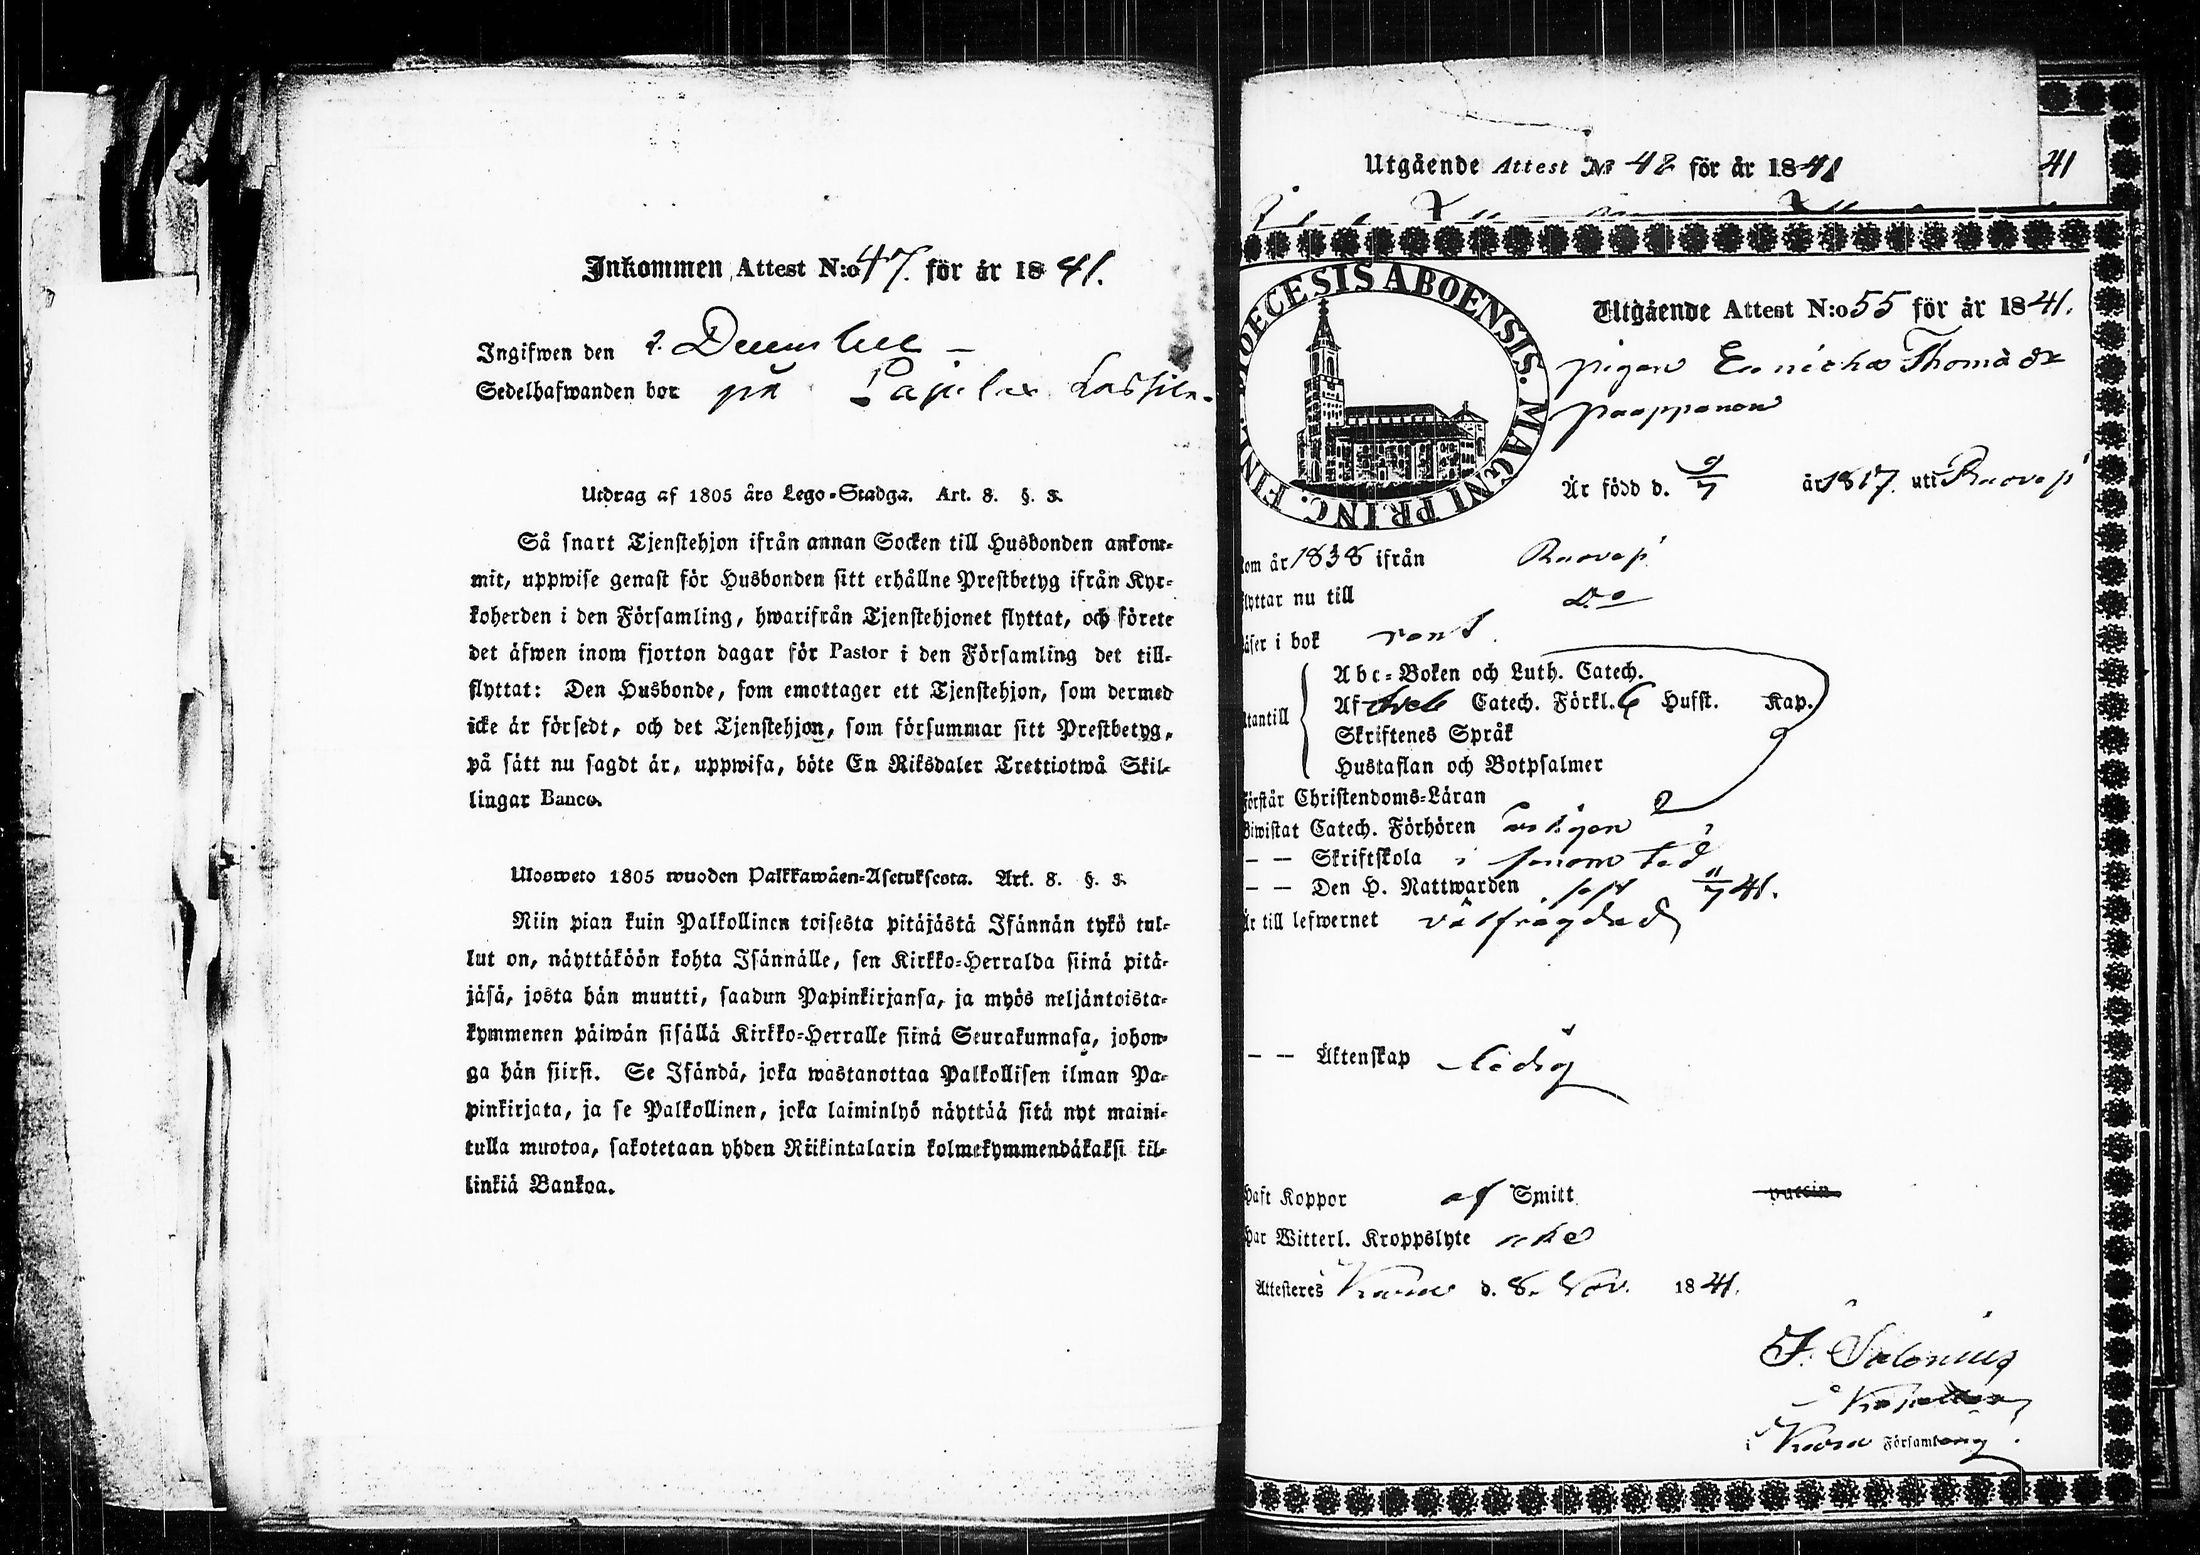 Inkommen Attest N:o 47. för år 1841.
Ingifwen den 2. December
Sedelhafwanden bor på Pajula Lassila.
Utdrag af 1805 års Lego-Stadga. Art. 8. §. 3.
Så snart Tjenstehjon ifrån annan Socken till Husbonden ankom-
mit, uppwise genast för Husbonden sitt erhållne Prestbetyg ifrån Kyr-
koherden i den Församling, hwarifrån Tjenstehjonet flyttat, och förete
det äfwen inom fjorton dagar för Pastor i den Församling det till-
flyttat: Den Husbonde, som emottager ett Tjenstehjon, som dermed
icke är försedt, och det Tjenstehjon, som försummar sitt Prestbetyg,
på sätt nu sagdt är, uppwisa, böte En Riksdaler Trettiotwå Skil-
lingar Banco.
Ulosweto 1805 wuoden Palkkawäen-Asetuksesta. Art. 8. §. 3.
Niin pian kuin Palkollinen toisesta pitäjästä Isännän tykö tul-
lut on, näyttäköön kohta Isännälle, sen Kirkko-Herralda siinä pitä-
jäsä, josta hän muutti, saadun Papinkirjansa, ja myös neljäntoista-
kymmenen päiwän sisällä Kirkko-Herralle siinä Seurakunnasa, johon-
ga hän siirsi. Se Isändä, joka wastanottaa Palkollisen ilman Pa-
pinkirjata, ja se Palkollinen, joka laiminlyö näyttää sitä nyt maini-
tulla muotoa, sakotetaan yhden Riikintalarin kolmekymmendäkaksi kil-
linkiä Bankoa.
Utgående Attest No 48 för år 1841
41
DIOECESIS ABOENSIS. MAGNI PRINC. FINL.
Utgående Attest N:o 55 för år 1841.
pigan Enicka Thomädr
Paappanen
Är född d. 9/7 år 1817. uti Ruovesi
om år 1838 ifrån Ruovesi
flyttar nu till Do
äser i bok rent.
Utantill
Abc-Boken och Luth. Catech.
Af Catech. Förkl. 6 Hufst. Kap.
Skriftenes Språk
Hustaflan och Botpsalmer
Förstår Christendoms-Läran
Biwistat Catech. Förhören årligen
— — Skriftskola i
— — Den H. Nattwarden sist 11/7 41.
Är till lefwernet välfrägdad
— — Äktenskap ledig
Haft Koppor af Smitt vaccin.
Har Witterl. Kroppslyte icke
Attesteres d. 8. Nov. 1841.
F. Salonius
Kapellan
i Församling.